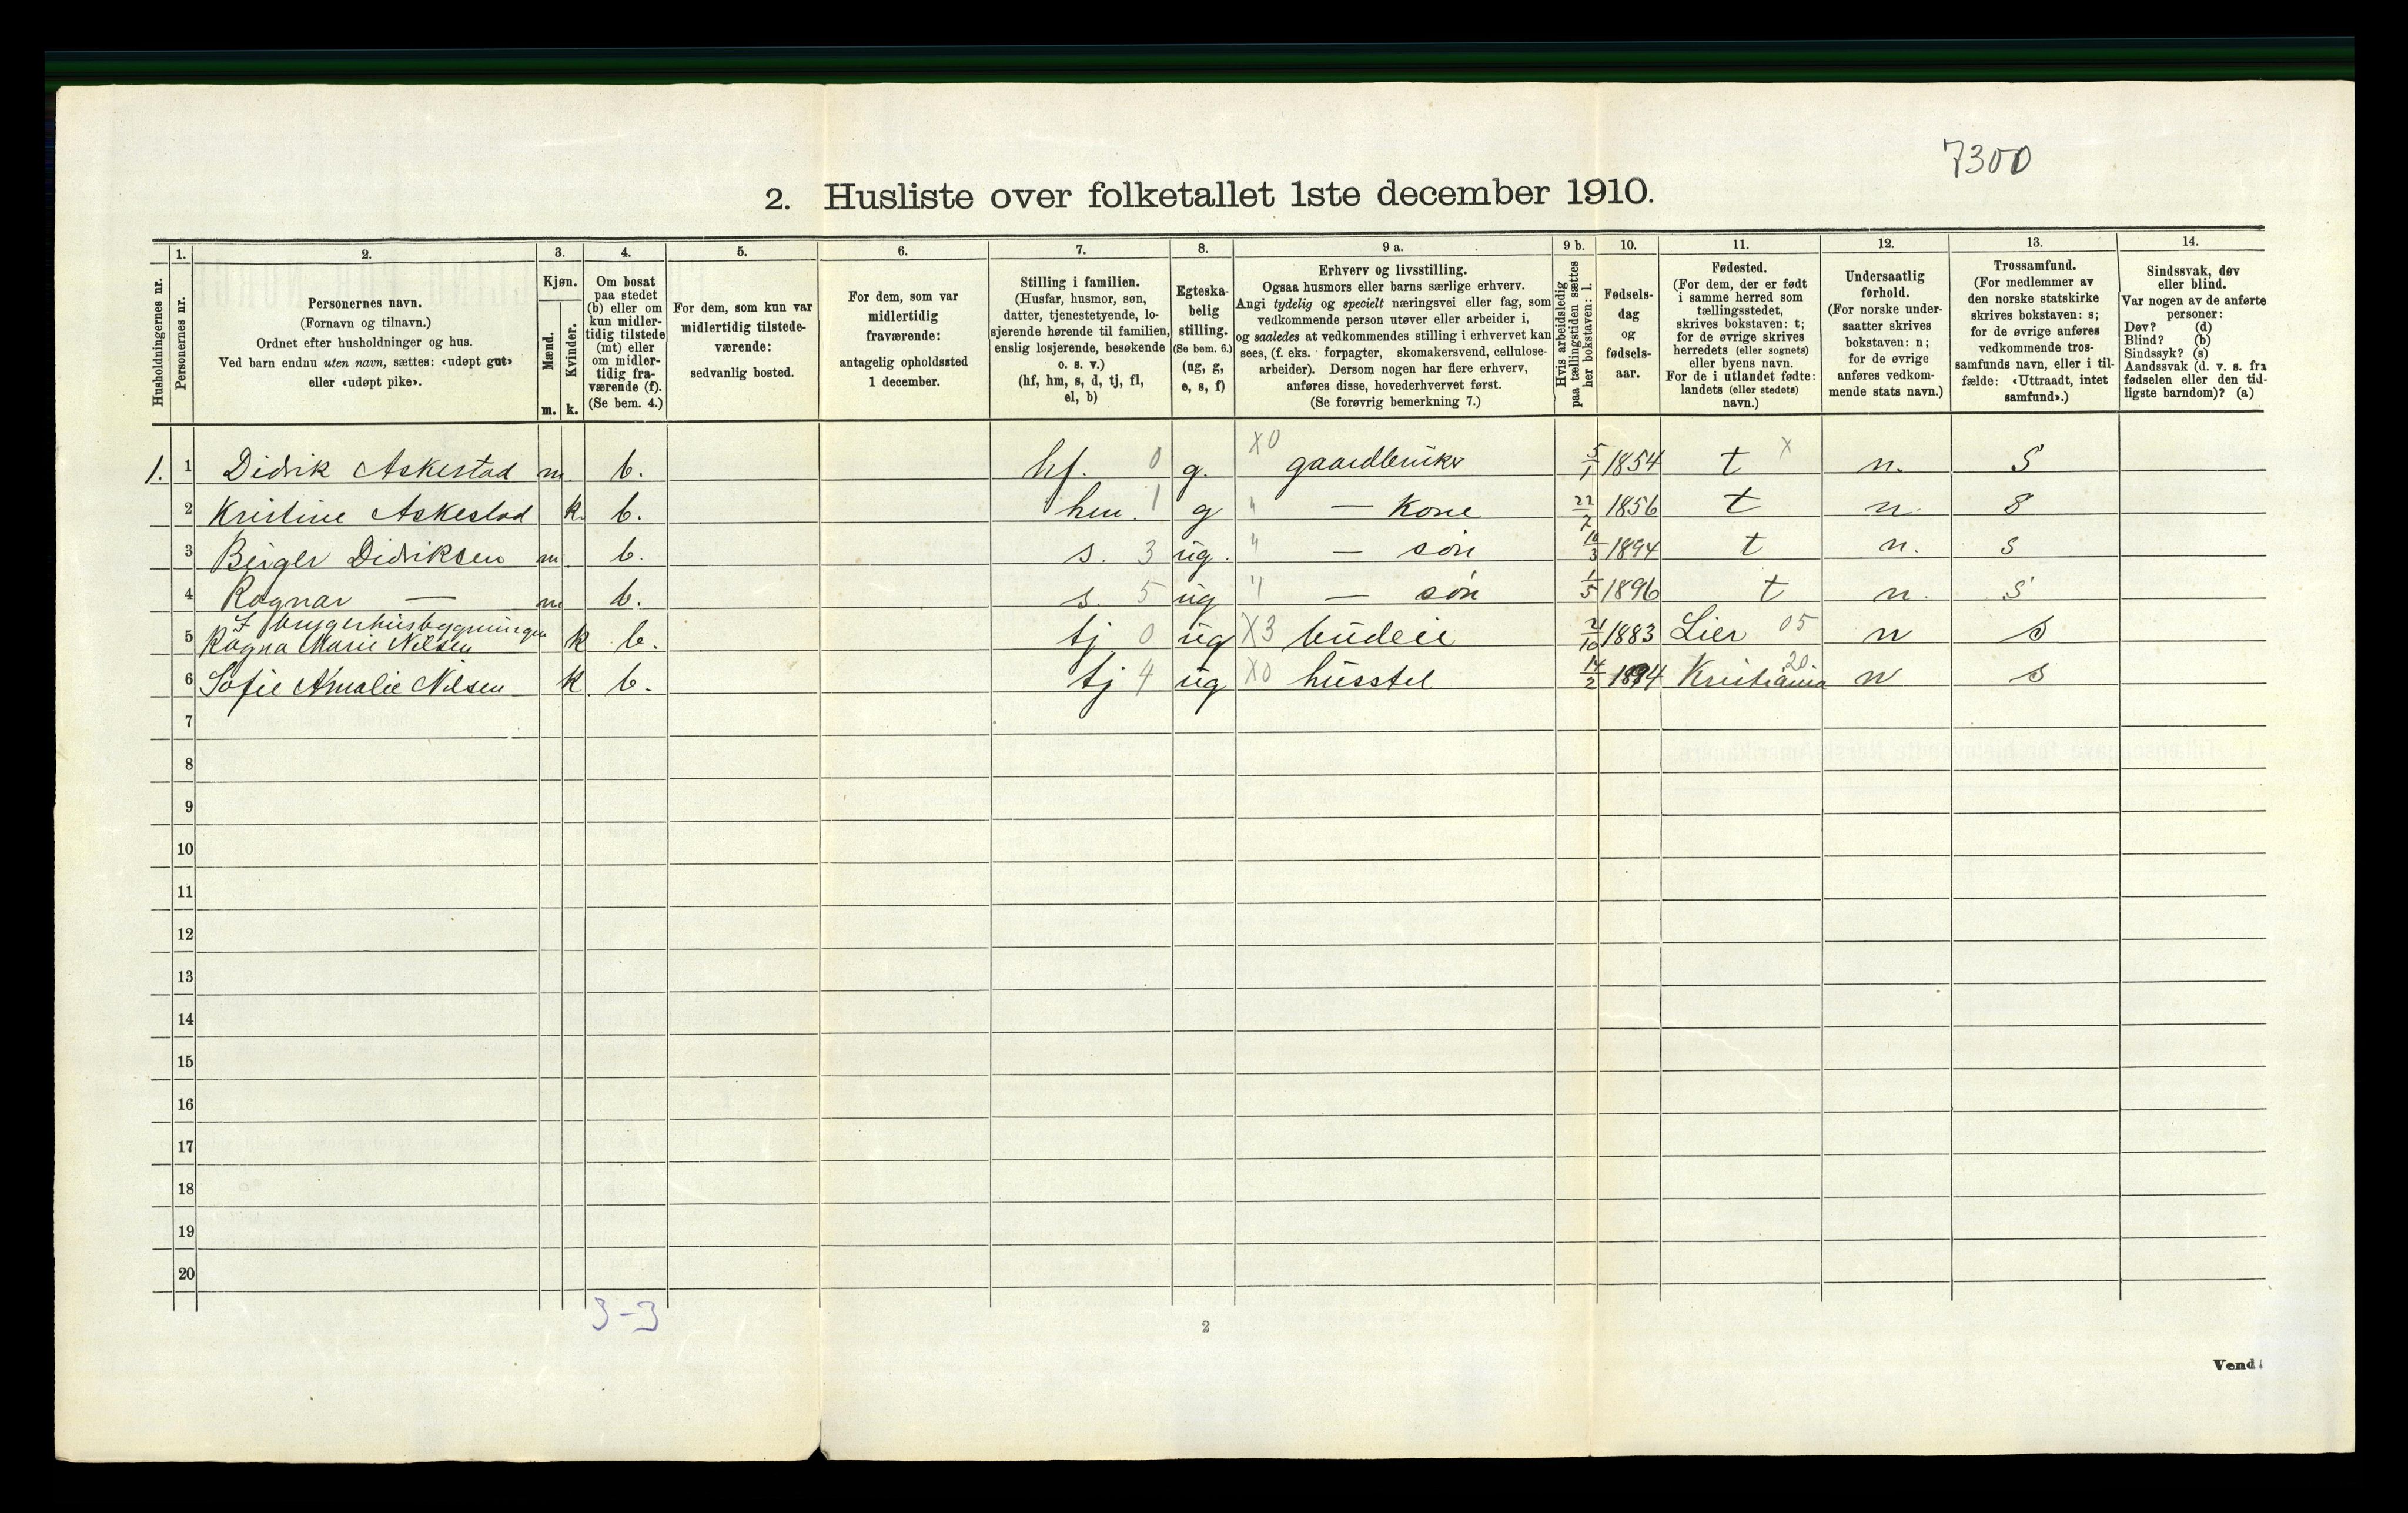 7300
2. Husliste over folketallet 1ste december 1910.
Husholdningernes nr.
1.
Personernes nr.
2.
Personernes navn.
(Fornavn og tilnavn.)
Ordnet efter husholdninger og hus.
Ved barn endnu uten navn, sættes: «udøpt gut»
eller «udøpt pike».
3.
Kjøn.
Mænd.
Kvinder.
m. k.
4.
Om bosat
paa stedet
(b) eller om
kun midler-
tidig tilstede
(mt) eller
om midler-
tidig fra-
værende (f).
(Se bem. 4.)
5.
For dem, som kun var
midlertidig tilstede-
værende:
sedvanlig bosted.
6.
For dem, som var
midlertidig
fraværende:
antagelig opholdssted
1 december.
7.
Stilling i familien.
(Husfar, husmor, søn,
datter, tjenestetyende, lo-
sjerende hørende til familien,
enslig losjerende, besøkende
o. s. v.)
(hf, hm, s, d, tj, fl,
el, b)
8.
Egteska-
belig
stilling.
(Se bem. 6.)
(ug, g,
e, s, f)
9 a.
Erhverv og livsstilling.
Ogsaa husmors eller barns særlige erhverv.
Angi tydelig og specielt næringsvei eller fag, som
vedkommende person utøver eller arbeider i,
og saaledes at vedkommendes stilling i erhvervet kan
sees, (f. eks. forpagter, skomakersvend, cellulose-
arbeider). Dersom nogen har flere erhverv,
anføres disse, hovederhvervet først.
(Se forøvrig bemerkning 7.)
9 b.
Hvis arbeidsledig
paa tællingstiden sættes
her bokstaven: l.
10.
Fødsels-
dag
og
fødsels-
aar.
11.
Fødested.
(For dem, der er født
i samme herred som
tællingsstedet,
skrives bokstaven: t;
for de øvrige skrives
herredets (eller sognets)
eller byens navn.
For de i utlandet fødte:
landets (eller stedets)
navn.)
12.
Undersaatlig
forhold.
(For norske under-
saatter skrives
bokstaven: n;
for de øvrige
anføres vedkom-
mende stats navn.)
13.
Trossamfund.
(For medlemmer av
den norske statskirke
skrives bokstaven: s;
for de øvrige anføres
vedkommende tros-
samfunds navn, eller i til-
fælde: «Uttraadt, intet
samfund».)
14.
Sindssvak, døv
eller blind.
Var nogen av de anførte
personer:
Døv? (d)
Blind? (b)
Sindssyk? (s)
Aandssvak (d. v. s. fra
fødselen eller den tid-
ligste barndom)? (a)
1. 1 Didrik Askestad m. b. hf. 0 g. X0 gaardbruker 5/1 1854 t X n. S
2 Kristine Askestad k. b. hm. 1 g " — Kone 22/7 1856 t n. s
3 Birger Didriksen m. b. s. 3 ug. " — søn 10/3 1894 t n. s
4 Ragnar — m b. s. 5 ug " — søn 1/5 1896 t n. s
I brygerhusbygningen
5 Ragna Marie Nilsen k b. tj 0 ug X3 budeie 21/10 1883 Lier 05 n s
6 Sofie Amalie Nilsen k b. tj 4 ug X0 husstel 14/2 1894 Kristiania 20. n s
7
8
9
10
11
12
13
14
15
16
17
18
19
20
3-3
2
Vend!